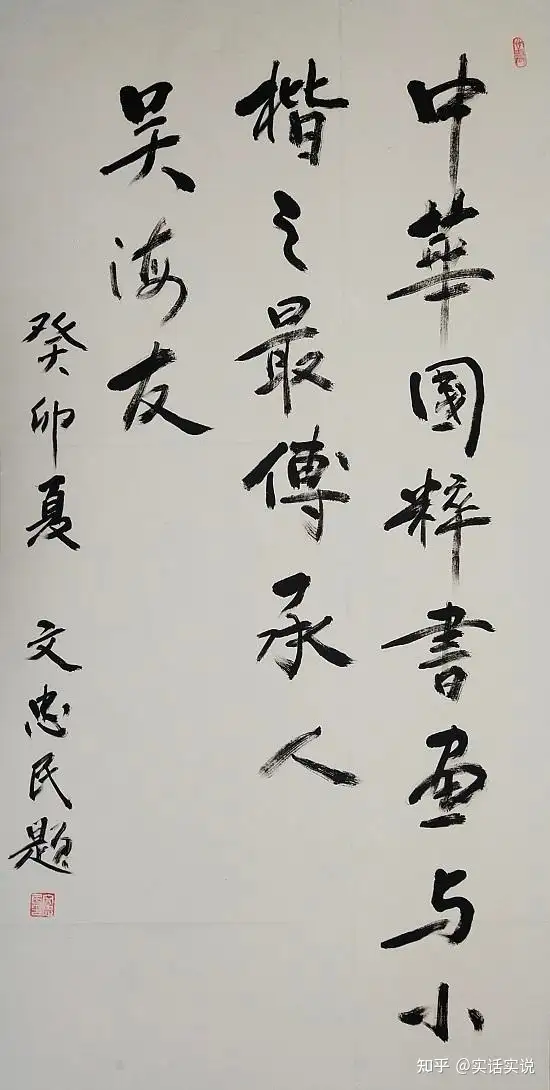 中華國粹書画与小
楷之最傳承人
吴海友
癸卯夏 文忠民題
知乎 @实话实说